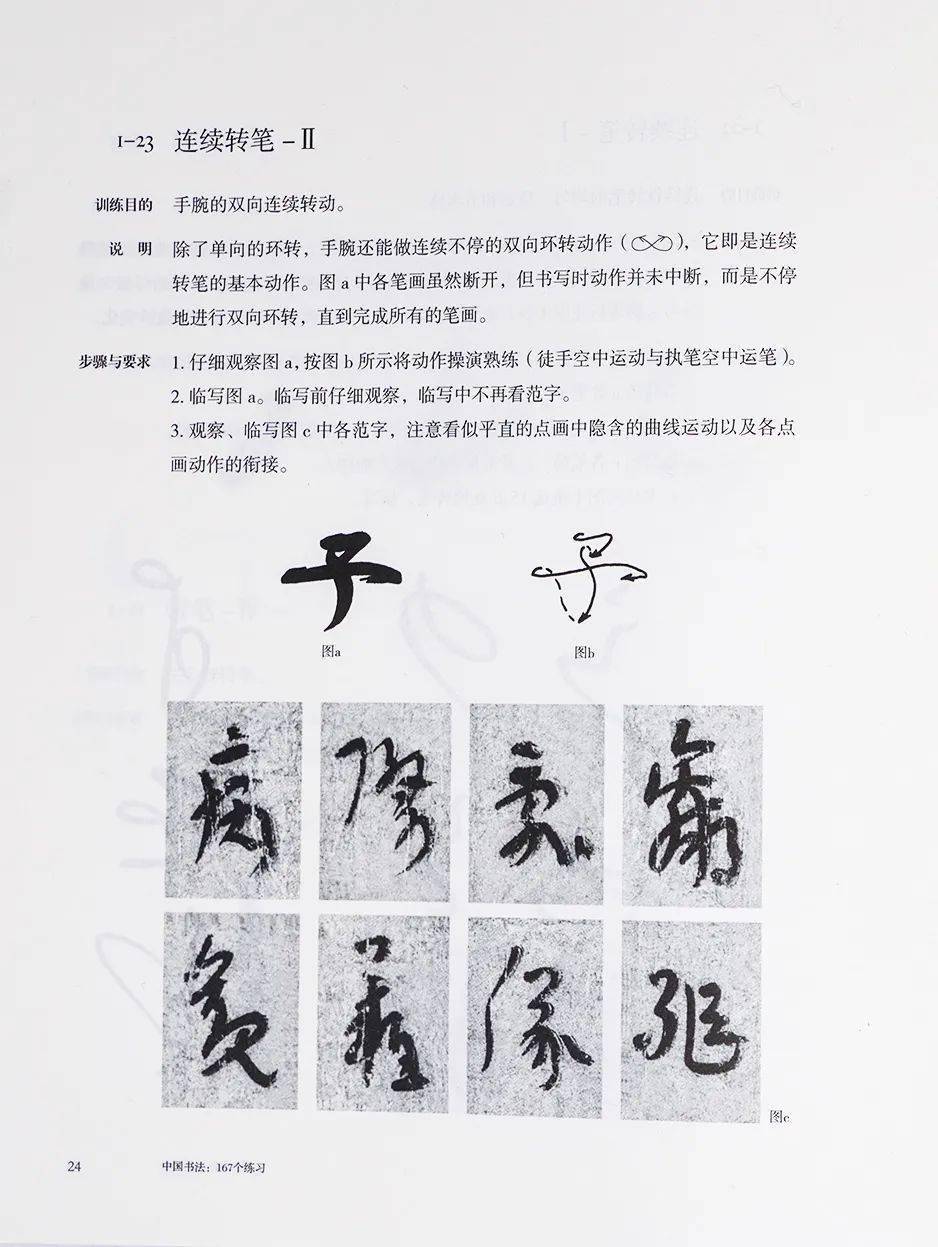 1-23 连续转笔-Ⅱ
训练目的 手腕的双向连续转动。
说 明 除了单向的环转，手腕还能做连续不停的双向环转动作（），它即是连续
转笔的基本动作。图a中各笔画虽然断开，但书写时动作并未中断，而是不停
地进行双向环转，直到完成所有的笔画。
步骤与要求 1.仔细观察图a,按图b所示将动作操演熟练（徒手空中运动与执笔空中运笔）。
2.临写图a。临写前仔细观察，临写中不再看范字。
3.观察、临写图c中各范字，注意看似平直的点画中隐含的曲线运动以及各点
画动作的衔接。
子
图a
图b
图c
24 中国书法：167个练习